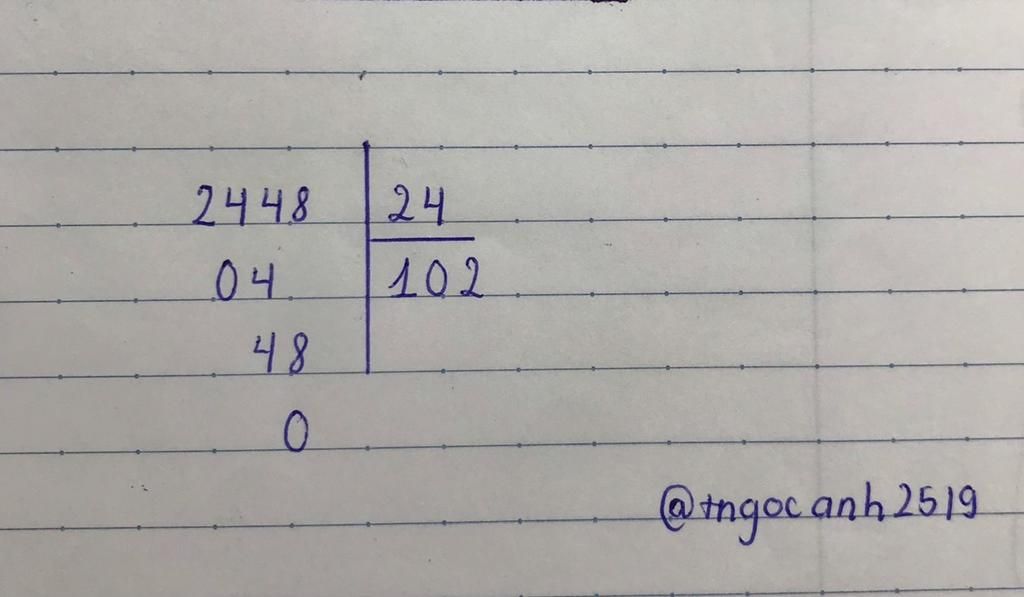 2448 24
04 102
48
0
@tngocanh2519